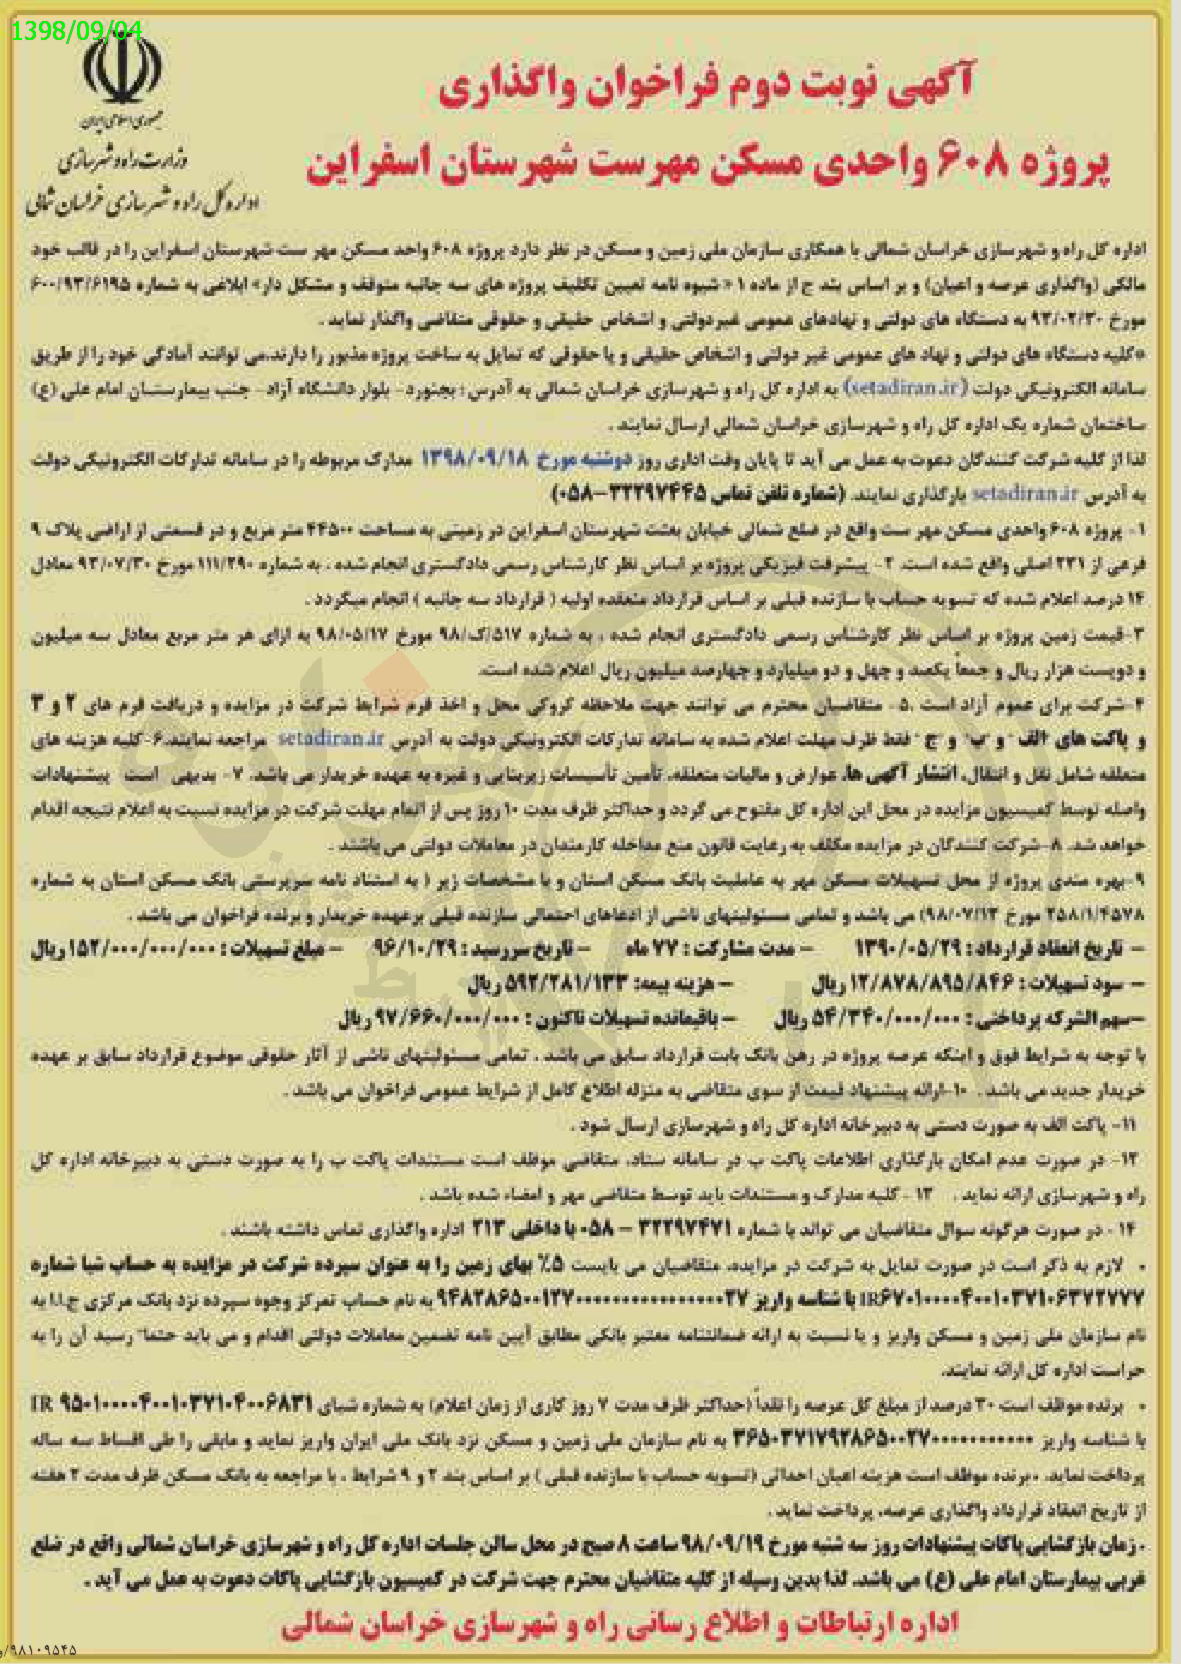 1398/09/04
جمهوری اسلامی ایران
وزارت راه و شهرسازی
اداره کل راه و شهرسازی خراسان شمالی
آگهی نوبت دوم فراخوان واگذاری
پروژه ۶۰۸ واحدی مسکن مهرست شهرستان اسفراین
اداره کل راه و شهرسازی خراسان شمالی با همکاری سازمان ملی زمین و مسکن در نظر دارد پروژه ۶۰۸ واحد مسکن مهر ست شهرستان اسفراین را در قالب خود
مالکی (واگذاری عرصه و اعیان) و بر اساس بند ج از ماده ۱ «شیوه نامه تعیین تکلیف پروژه های سه جانبه متوقف و مشکل دار» ابلاغی به شماره ۶۰۰/۹۳/۶۱۹۵
مورخ ۹۳/۰۲/۳۰ به دستگاه های دولتی و نهادهای عمومی غیردولتی و اشخاص حقیقی و حقوقی متقاضی واگذار نماید .
*کلیه دستگاه های دولتی و نهاد های عمومی غیر دولتی و اشخاص حقیقی و یا حقوقی که تمایل به ساخت پروژه مذبور را دارند،می توانند آمادگی خود را از طریق
سامانه الکترونیکی دولت (setadiran.ir) به اداره کل راه و شهرسازی خراسان شمالی به آدرس : بجنورد- بلوار دانشگاه آزاد- جنب بیمارستان امام علی (ع)
ساختمان شماره یک اداره کل راه و شهرسازی خراسان شمالی ارسال نمایند .
لذا از کلیه شرکت کنندگان دعوت به عمل می آید تا پایان وقت اداری روز دوشنبه مورخ ۱۳۹۸/۰۹/۱۸ مدارک مربوطه را در سامانه تدارکات الکترونیکی دولت
به آدرس setadiran.ir بارگذاری نمایند. (شماره تلفن تماس ۳۲۲۹۷۴۴۵-۰۵۸)
۱- پروژه ۶۰۸ واحدی مسکن مهر ست واقع در ضلع شمالی خیابان بعثت شهرستان اسفراین در زمینی به مساحت ۴۴۵۰۰ متر مربع و در قسمتی از اراضی پلاک ۹
فرعی از ۲۳۱ اصلی واقع شده است. ۲- پیشرفت فیزیکی پروژه بر اساس نظر کارشناس رسمی دادگستری انجام شده ، به شماره ۱۱۱/۲۹۰ مورخ ۹۳/۰۷/۳۰ معادل
۱۴ درصد اعلام شده که تسویه حساب با سازنده قبلی بر اساس قرارداد منعقده اولیه ( قرارداد سه جانبه ) انجام میگردد .
۳-قیمت زمین پروژه بر اساس نظر کارشناس رسمی دادگستری انجام شده ، به شماره ۵۱۷/ک/۹۸ مورخ ۹۸/۰۵/۱۷ به ازای هر متر مربع معادل سه میلیون
و دویست هزار ریال و جمعاً یکصد و چهل و دو میلیارد و چهارصد میلیون ریال اعلام شده است.
۴-شرکت برای عموم آزاد است .۵- متقاضیان محترم می توانند جهت ملاحظه کروکی محل و اخذ فرم شرایط شرکت در مزایده و دریافت فرم های ۲ و ۳
و پاکت های "الف" و"ب" و"ج" فقط ظرف مهلت اعلام شده به سامانه تدارکات الکترونیکی دولت به آدرس setadiran.ir مراجعه نمایند.۶-کلیه هزینه های
متعلقه شامل نقل و انتقال، انتشار آگهی ها، عوارض و مالیات متعلقه، تأمین تأسیسات زیربنایی و غیره به عهده خریدار می باشد. ۷- بدیهی است پیشنهادات
واصله توسط کمیسیون مزایده در محل این اداره کل مفتوح می گردد و حداکثر ظرف مدت ۱۰ روز پس از اتمام مهلت شرکت در مزایده نسبت به اعلام نتیجه اقدام
خواهد شد. ۸-شرکت کنندگان در مزایده مکلف به رعایت قانون منع مداخله کارمندان در معاملات دولتی می باشند .
۹-بهره مندی پروژه از محل تسهیلات مسکن مهر به عاملیت بانک مسکن استان و با مشخصات زیر ( به استناد نامه سرپرستی بانک مسکن استان به شماره
۲۵۸/۱/۴۵۷۸ مورخ ۹۸/۰۷/۱۳) می باشد و تمامی مسئولیتهای ناشی از ادعاهای احتمالی سازنده قبلی برعهده خریدار و برنده فراخوان می باشد .
- تاریخ انعقاد قرارداد : ۱۳۹۰/۰۵/۲۹ - مدت مشارکت : ۷۷ ماه - تاریخ سررسید : ۹۶/۱۰/۲۹ - مبلغ تسهیلات : ۱۵۲/۰۰۰/۰۰۰/۰۰۰ ریال
- سود تسهیلات : ۱۲/۸۷۸/۸۹۵/۸۴۶ ریال - هزینه بیمه: ۵۹۲/۲۸۱/۱۳۳ ریال
-سهم الشرکه پرداختی : ۵۴/۳۴۰/۰۰۰/۰۰۰ ریال - باقیمانده تسهیلات تاکنون : ۹۷/۶۶۰/۰۰۰/۰۰۰ ریال
با توجه به شرایط فوق و اینکه عرصه پروژه در رهن بانک بابت قرارداد سابق می باشد ، تمامی مسئولیتهای ناشی از آثار حقوقی موضوع قرارداد سابق بر عهده
خریدار جدید می باشد . ۱۰-ارائه پیشنهاد قیمت از سوی متقاضی به منزله اطلاع کامل از شرایط عمومی فراخوان می باشد .
۱۱- پاکت الف به صورت دستی به دبیرخانه اداره کل راه و شهرسازی ارسال شود .
۱۲- در صورت عدم امکان بارگذاری اطلاعات پاکت ب در سامانه ستاد، متقاضی موظف است مستندات پاکت ب را به صورت دستی به دبیرخانه اداره کل
راه و شهرسازی ارائه نماید . ۱۳ - کلیه مدارک و مستندات باید توسط متقاضی مهر و امضاء شده باشد .
۱۴ - در صورت هرگونه سوال متقاضیان می تواند با شماره ۳۲۲۹۷۴۷۱ - ۰۵۸ با داخلی ۲۱۳ اداره واگذاری تماس داشته باشند .
• لازم به ذکر است در صورت تمایل به شرکت در مزایده، متقاضیان می بایست ۵٪ بهای زمین را به عنوان سپرده شرکت در مزایده به حساب شبا شماره
با شناسه واریز به نام حساب تمرکز وجوه سپرده نزد بانک مرکزی ج.ا.ا به
نام سازمان ملی زمین و مسکن واریز و یا نسبت به ارائه ضمانتنامه معتبر بانکی مطابق آیین نامه تضمین معاملات دولتی اقدام و می باید حتما" رسید آن را به
حراست اداره کل ارائه نمایند.
• برنده موظف است ۳۰ درصد از مبلغ کل عرصه را نقداً (حداکثر ظرف مدت ۷ روز کاری از زمان اعلام) به شماره شبای IR ۹۵۰۱۰۰۰۰۴۰۰۱۰۳۷۱۰۴۰۰۶۸۳۱
با شناسه واریز به نام سازمان ملی زمین و مسکن نزد بانک ملی ایران واریز نماید و مابقی را طی اقساط سه ساله
پرداخت نماید. •برنده موظف است هزینه اعیان احداثی (تسویه حساب با سازنده قبلی ) بر اساس بند ۲ و ۹ شرایط ، با مراجعه به بانک مسکن ظرف مدت ۲ هفته
از تاریخ انعقاد قرارداد واگذاری عرصه، پرداخت نماید .
• زمان بازگشایی پاکات پیشنهادات روز سه شنبه مورخ ۹۸/۰۹/۱۹ ساعت ۸ صبح در محل سالن جلسات اداره کل راه و شهرسازی خراسان شمالی واقع در ضلع
غربی بیمارستان امام علی (ع) می باشد. لذا بدین وسیله از کلیه متقاضیان محترم جهت شرکت در کمیسیون بازگشایی پاکات دعوت به عمل می آید .
اداره ارتباطات و اطلاع رسانی راه و شهرسازی خراسان شمالی
۹۸۱۰۹۵۴۵/و